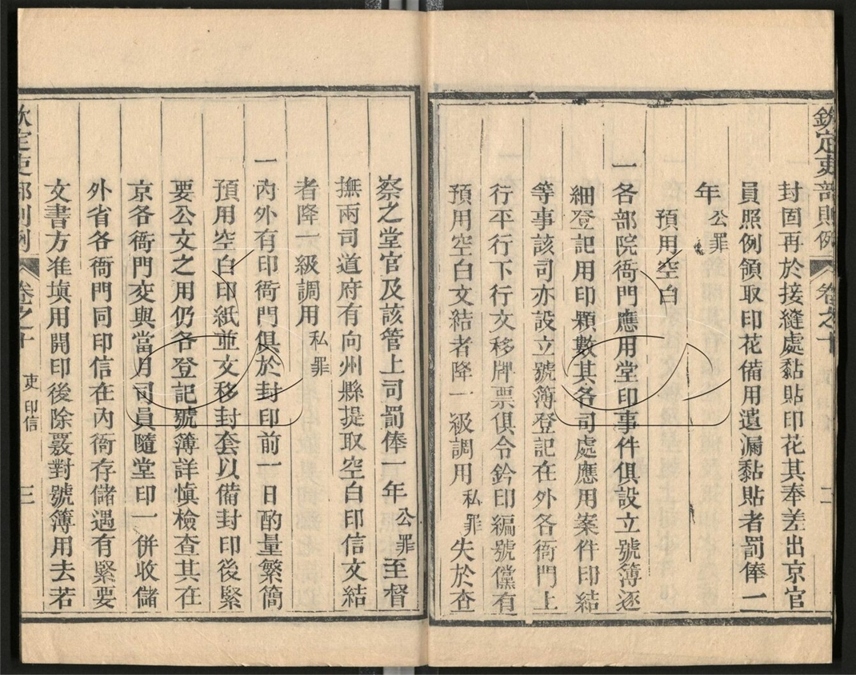 欽定吏部則例 卷之十 二
封固再於接縫處黏貼印花其奉差出京官
員照例領取印花備用遺漏黏貼者罰俸二
年公罪
預用空白
一各部院衙門應用堂印事件俱設立號簿逐
細登記用印顆數其各司處應用案件印結
等事該司亦設立號簿登記在外各衙門上
行平行下行文移牌票俱令鈐印編號儻有
預用空白文結者降一級調用私罪失於查
察之堂官及該管上司罰俸一年公罪至督
撫兩司道府有向州縣提取空白印信文結
者降一級調用私罪
一內外有印衙門俱於封印前一日酌量繁簡
預用空白印紙並文移封套以備封印後緊
要公文之用仍各登記號簿詳慎檢查其在
京各衙門交與當月司員隨堂印一併收儲
外省各衙門同印信在內衙存儲遇有緊要
文書方准填用開印後除覈對號簿用去若
欽定吏部則例 卷之十 吏 印信 三